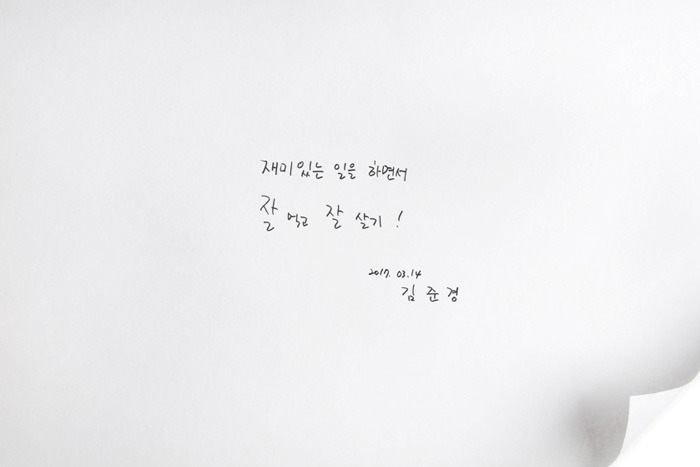 재미있는 일을 하면서
잘 먹고 잘 살기!
2017. 03. 14
김준경